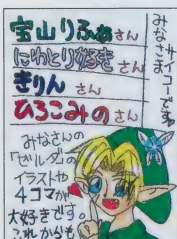 みなさま
サイコーですね
宝山りふぁさん
にわとり好きさん
きりんさん
ひろこみのさん
みなさんの
「ゼルダ」の
イラストや
4コマが
大好きです。
これからも